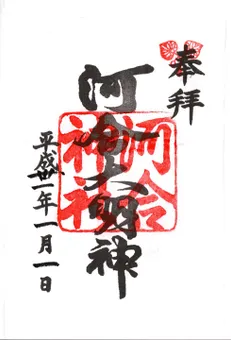 奉拝
河合大明神
河合神社
平成廿一年一月一日